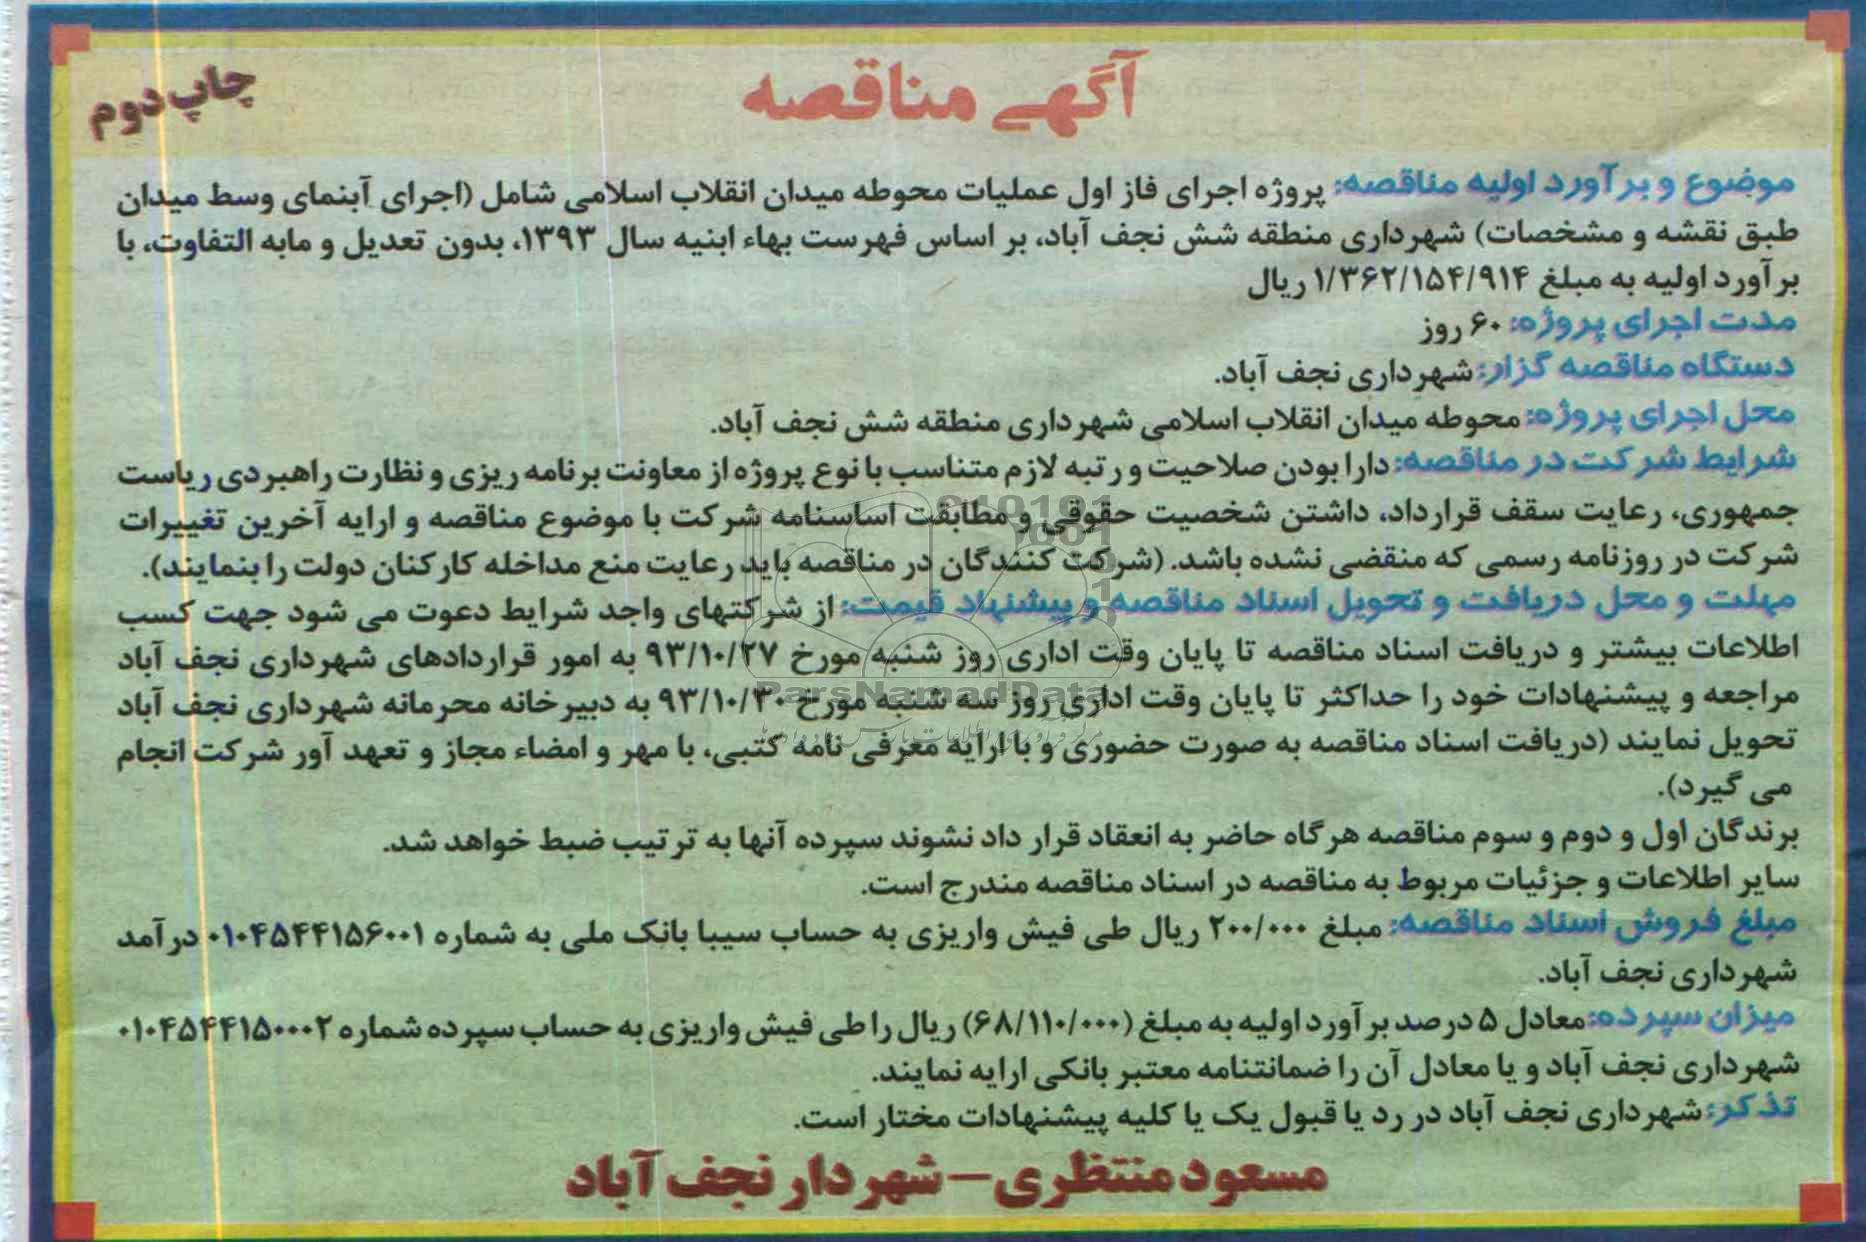 آگهی مناقصه
چاپ دوم
موضوع و برآورد اولیه مناقصه: پروژه اجرای فاز اول عملیات محوطه میدان انقلاب اسلامی شامل (اجرای آبنمای وسط میدان
طبق نقشه و مشخصات) شهرداری منطقه شش نجف آباد، بر اساس فهرست بهاء ابنیه سال ۱۳۹۳، بدون تعدیل و مابه التفاوت، با
برآورد اولیه به مبلغ ۱/۳۶۲/۱۵۴/۹۱۴ ریال
مدت اجرای پروژه: ۶۰ روز
دستگاه مناقصه گزار: شهرداری نجف آباد.
محل اجرای پروژه: محوطه میدان انقلاب اسلامی شهرداری منطقه شش نجف آباد.
شرایط شرکت در مناقصه: دارا بودن صلاحیت و رتبه لازم متناسب با نوع پروژه از معاونت برنامه ریزی و نظارت راهبردی ریاست
جمهوری، رعایت سقف قرارداد، داشتن شخصیت حقوقی و مطابقت اساسنامه شرکت با موضوع مناقصه و ارایه آخرین تغییرات
شرکت در روزنامه رسمی که منقضی نشده باشد. (شرکت کنندگان در مناقصه باید رعایت منع مداخله کارکنان دولت را بنمایند).
مهلت و محل دریافت و تحویل اسناد مناقصه و پیشنهاد قیمت: از شرکتهای واجد شرایط دعوت می شود جهت کسب
اطلاعات بیشتر و دریافت اسناد مناقصه تا پایان وقت اداری روز شنبه مورخ ۹۳/۱۰/۲۷ به امور قراردادهای شهرداری نجف آباد
مراجعه و پیشنهادات خود را حداکثر تا پایان وقت اداری روز سه شنبه مورخ ۹۳/۱۰/۳۰ به دبیرخانه محرمانه شهرداری نجف آباد
ParsNamadData
تحویل نمایند (دریافت اسناد مناقصه به صورت حضوری و با ارایه معرفی نامه کتبی، با مهر و امضاء مجاز و تعهد آور شرکت انجام
می گیرد).
برندگان اول و دوم و سوم مناقصه هرگاه حاضر به انعقاد قرار داد نشوند سپرده آنها به ترتیب ضبط خواهد شد.
سایر اطلاعات و جزئیات مربوط به مناقصه در اسناد مناقصه مندرج است.
مبلغ فروش اسناد مناقصه: مبلغ ۲۰۰/۰۰۰ ریال طی فیش واریزی به حساب سیبا بانک ملی به شماره ۰۱۰۴۵۴۴۱۵۶۰۰۱ درآمد
شهرداری نجف آباد.
میزان سپرده: معادل ۵ درصد برآورد اولیه به مبلغ (۶۸/۱۱۰/۰۰۰) ریال را طی فیش واریزی به حساب سپرده شماره ۰۱۰۴۵۴۴۱۵۰۰۰۲
شهرداری نجف آباد و یا معادل آن را ضمانتنامه معتبر بانکی ارایه نمایند.
تذکر: شهرداری نجف آباد در رد یا قبول یک یا کلیه پیشنهادات مختار است.
مسعود منتظری – شهردار نجف آباد